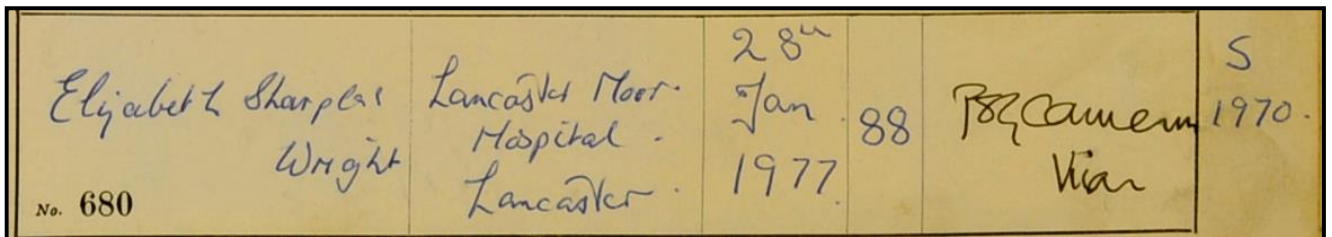 Elizabeth Sharples
Wright
No. 680
Lancaster Moor
Hospital.
Lancaster.
28th
Jan
1977
88
Cameron
Vicar
S
1970.